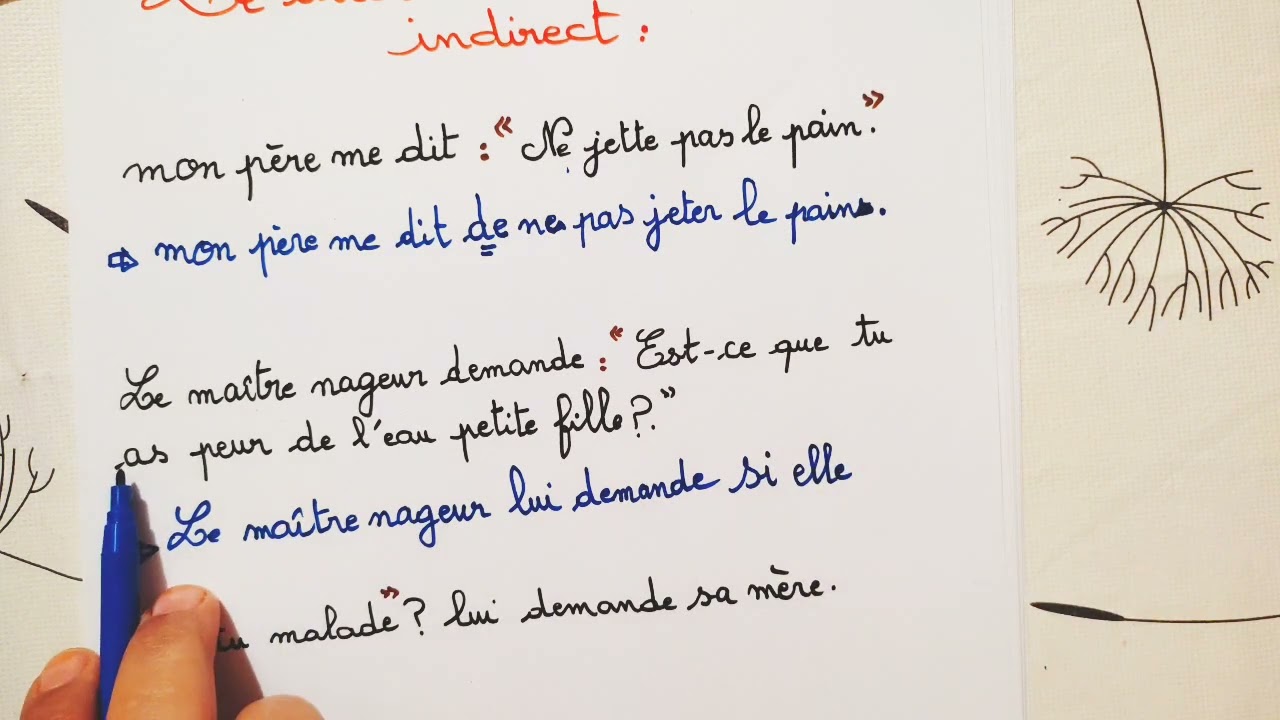 indirect :
mon père me dit : « Ne jette pas le pain. »
⇨ mon père me dit de ne pas jeter le pain.
Le maître nageur demande : « Est-ce que tu
as peur de l'eau petite fille ?. »
Le maître nageur lui demande si elle
tu malade » ? lui demande sa mère.